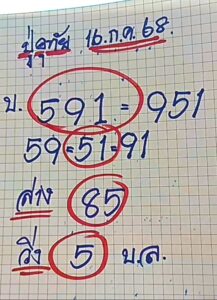 ปู่อุทัย 16.ก.ค.68.
บ. 591 = 951
59=51=91
ล่าง 85
วิ่ง 5 บ.ล.